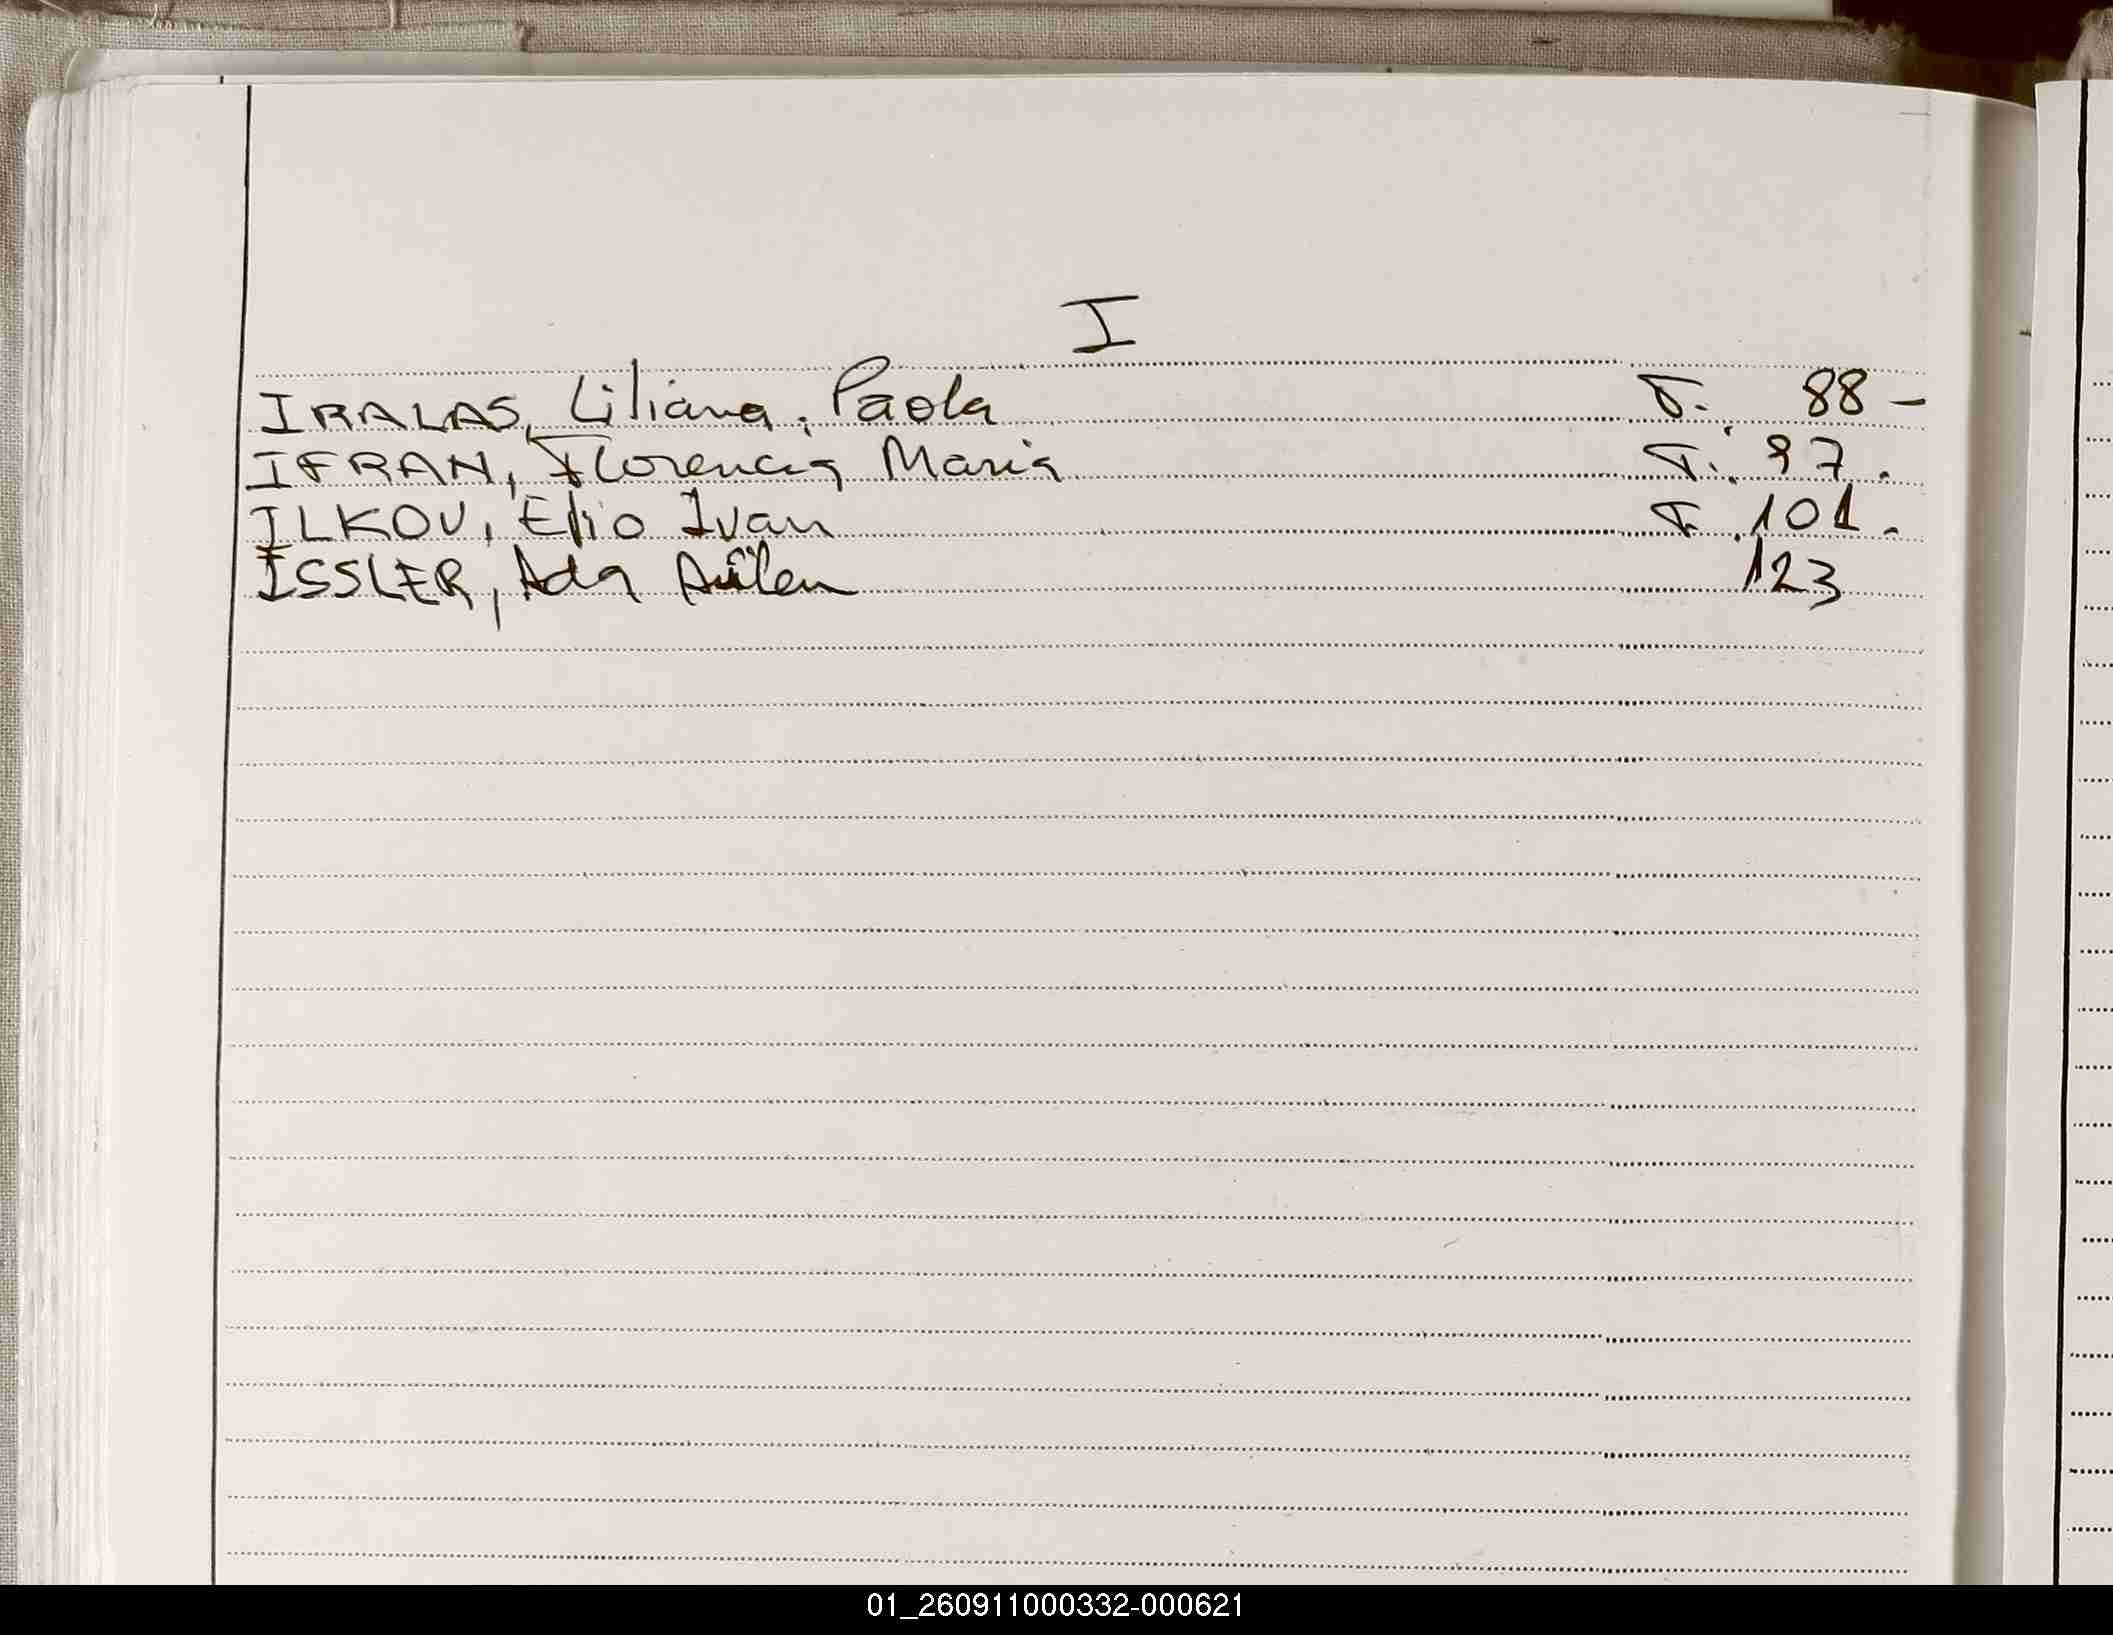 I
IRALAS, Liliana, Paola F. 88 -
IFRAN, Florencia Maria F. 97.
ILKOV, Elio Ivan F. 101.
ISSLER, Ada 123
01_260911000332-000621